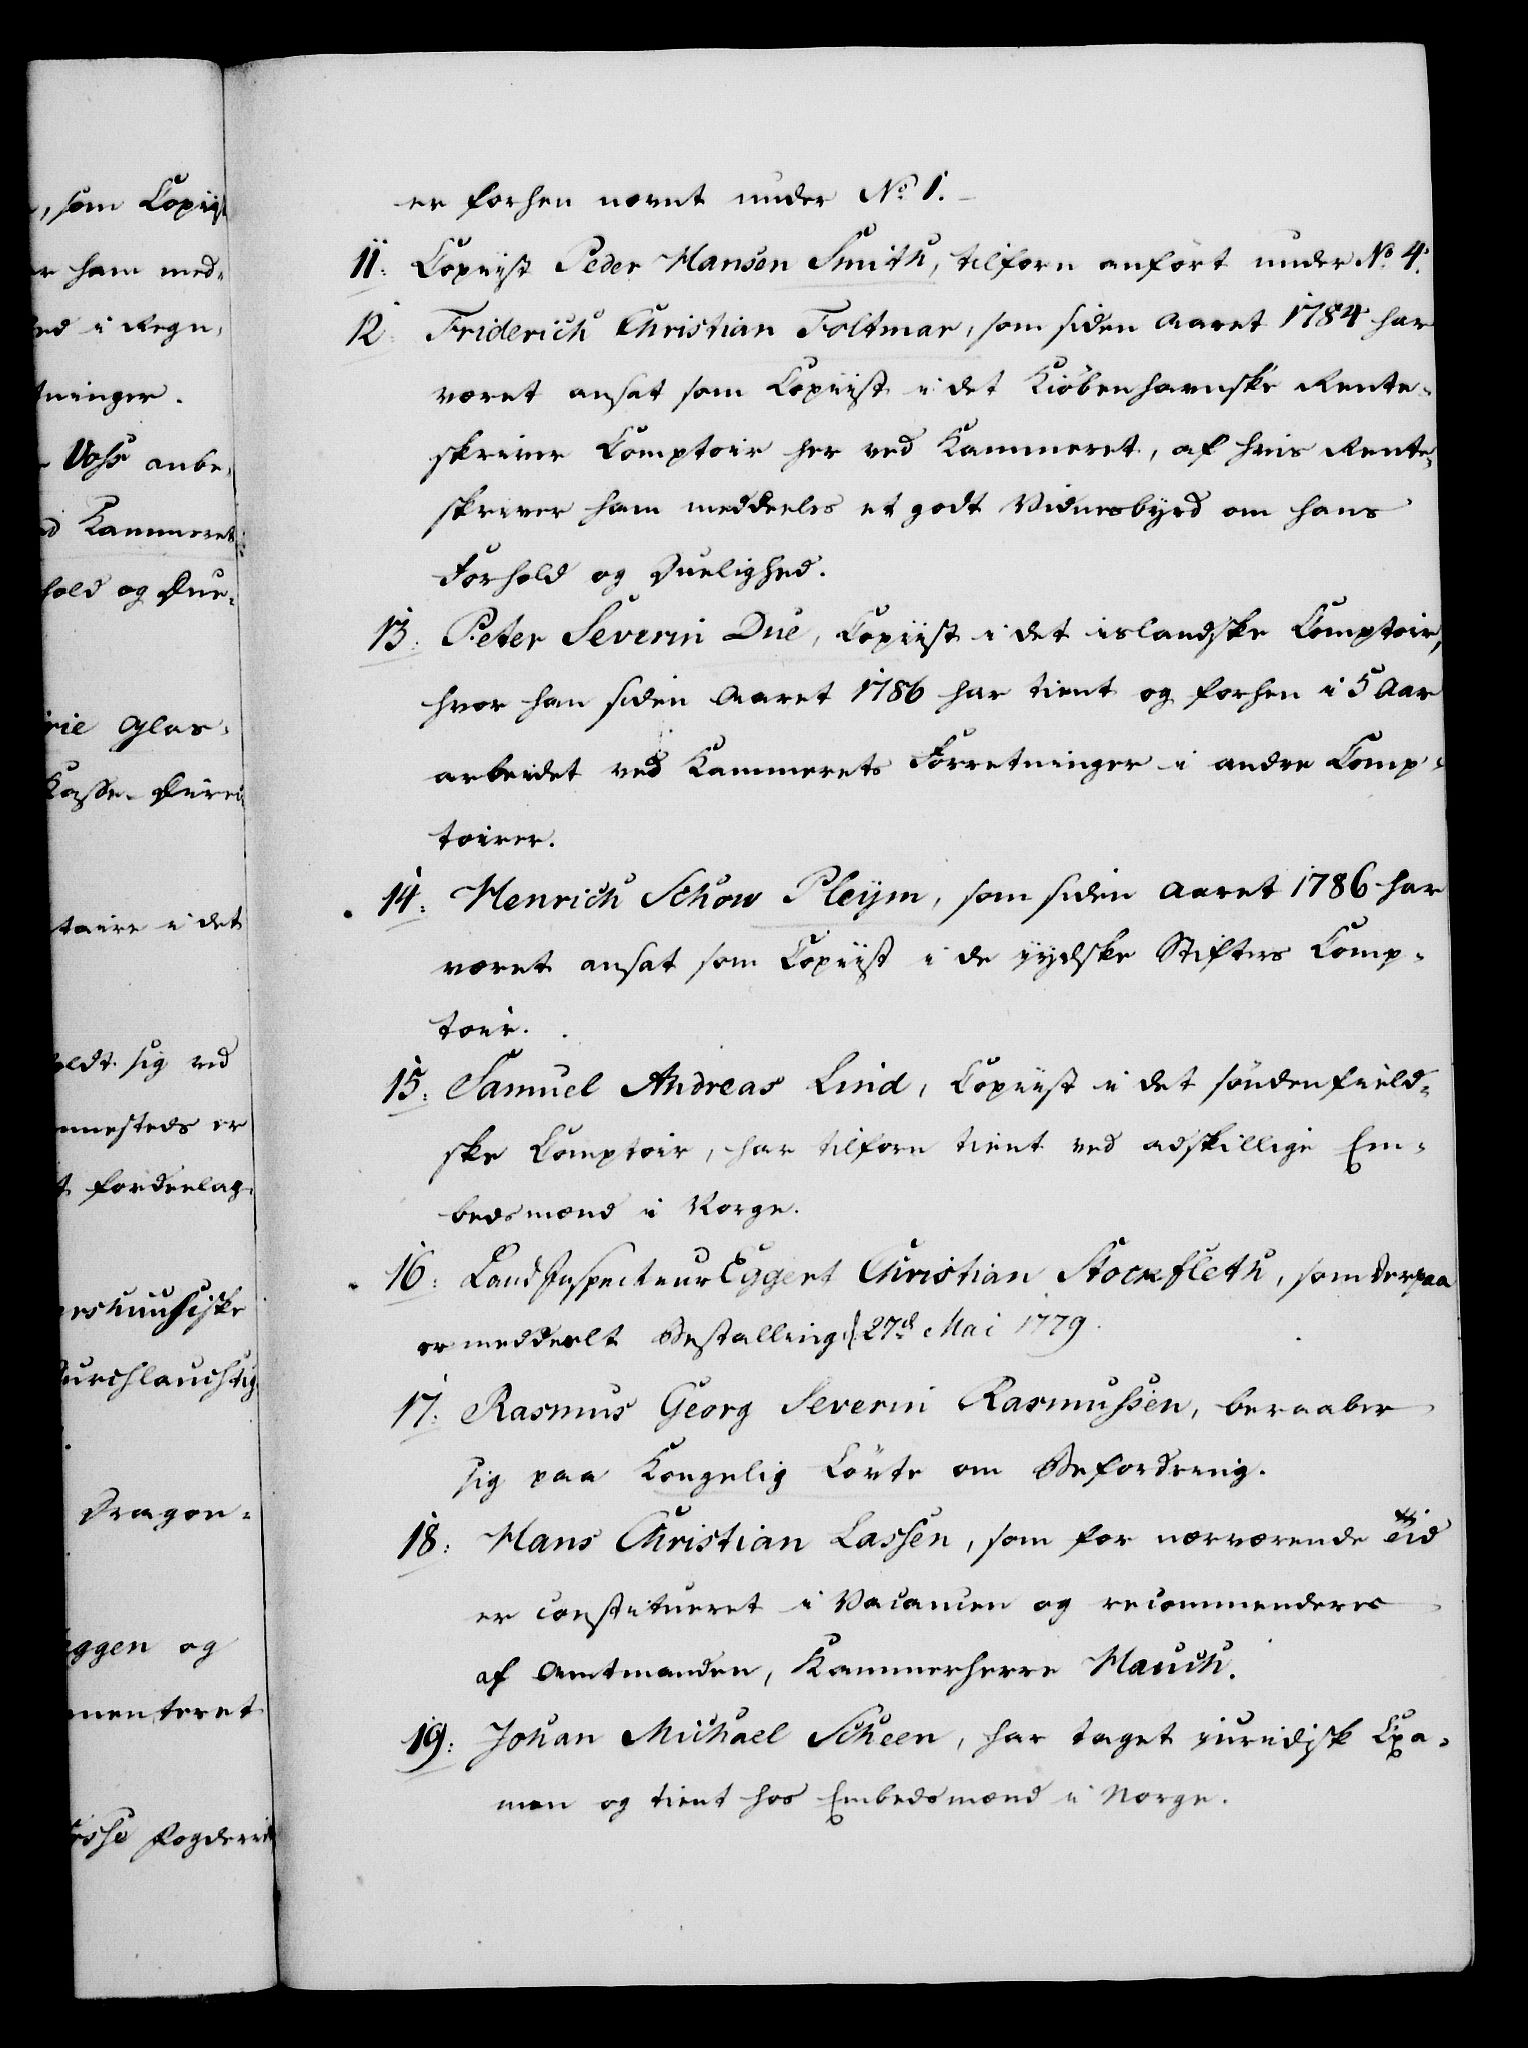 , som Copiist
er ham med-
hed i Regn,
tninger.
Voss anbe,
ed Kammeret
hold og Due-
rie Glas-
Kasse-Direc
taire i det
oldt sig ved
nnesteds er
t fordeelag-
urchlauchtig
Dragon-
ggen og
menteret
Fogderie
er forhen nævnt under No. 1.
11. Copiist Peder Hansen Smith, tilforn anført under No. 4.
12. Friderich Christian Foltmar, som siden Aaret 1784 har
været ansat som Copiist i det Kiöbenhavnske Rente-
skriver Comptoir her ved Kammeret, af hvis Rente-
skriver ham meddeles et godt Vidnesbyrd om hans
Forhold og Duelighed.
13. Peter Severin Due, Copiist i det islandske Comptoir,
hvor han siden Aaret 1786 har tient og forhen i 5 Aar
arbeidet ved Kammerets Forretninger i andre Comp-
toirer.
14. Henrich Schow Pleym, som siden Aaret 1786 har
været ansat som Copiist i de jydske Stifters Comp-
toir.
15. Samuel Andreas Lind, Copiist i det söndenfield-
ske Comptoir, har tilforn tient ved adskillige Em-
bedsmænd i Norge.
16. Land Inspecteur Eggert Christian Stockfleth, som derpaa
er meddeelt Bestalling 27de Mai 1779.
17. Rasmus Georg Severin Rasmussen, beraaber
sig paa Kongelig Lövte om Befordring.
18. Hans Christian Lassen, som for nærværende Tid
er constitueret i Vacancen og recommenderes
af Amtmanden, Kammerherre Hauch.
19. Johan Michael Scheen, har taget juridisk Exa-
men og tient hos Embedsmænd i Norge.